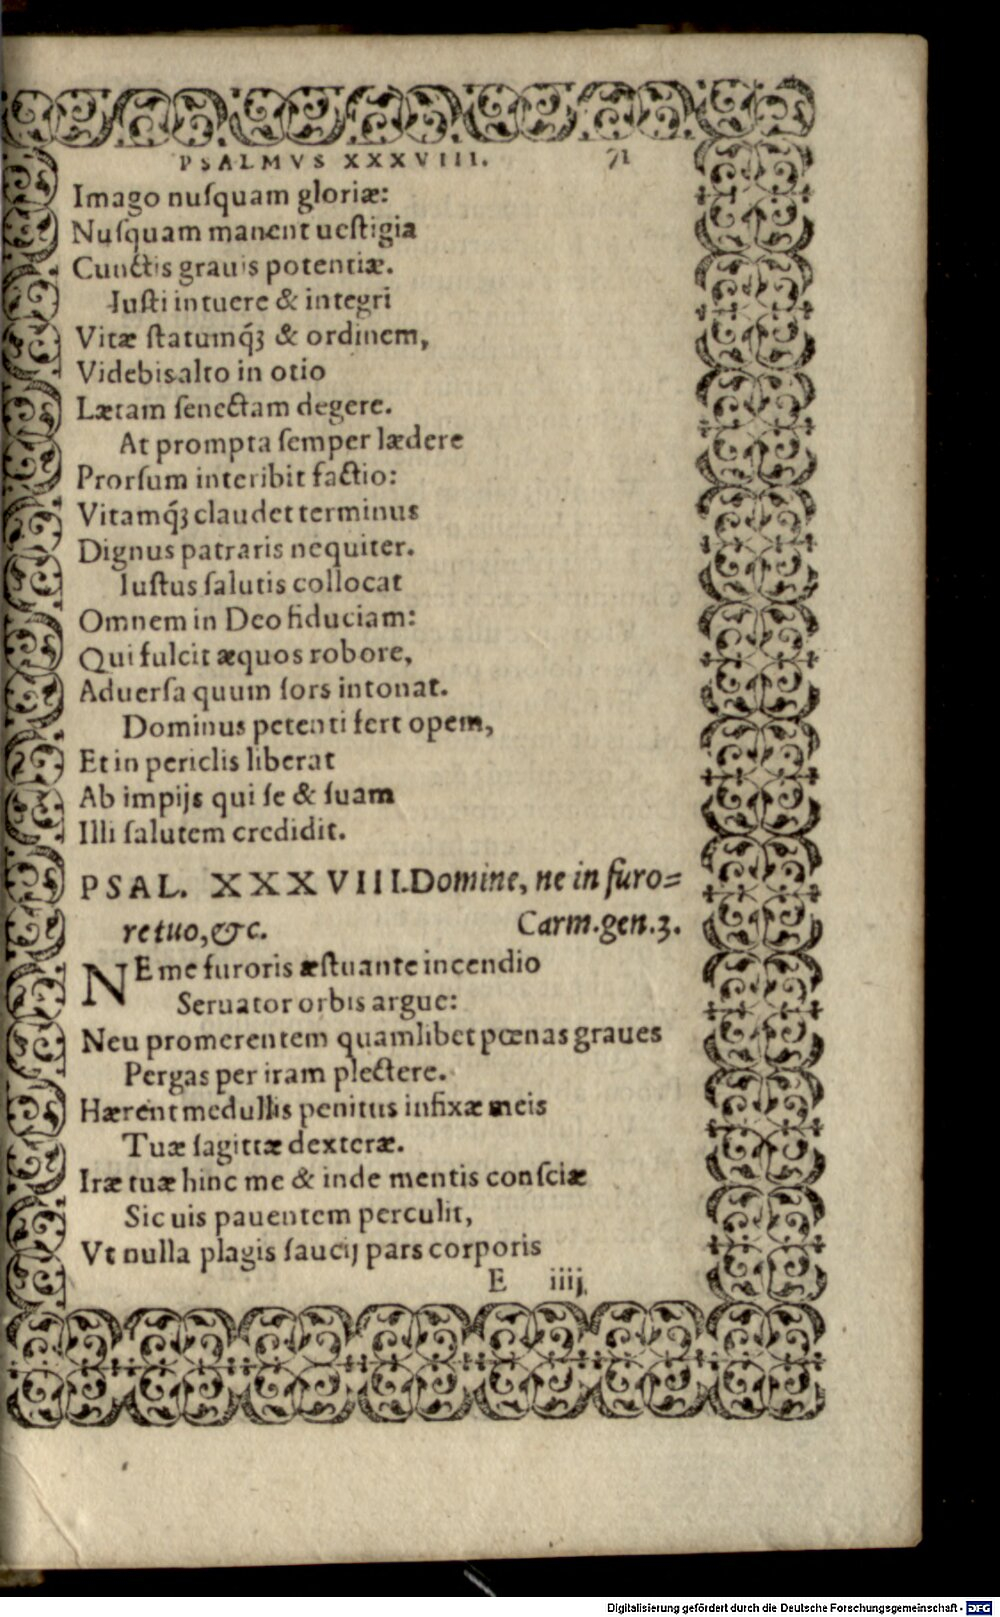 PSALMVS XXXVIII. 71
Imago nuſquam gloriæ:
Nuſquam manent ueſtigia
Cunctis grauis potentiæ.
Iuſti intuere & integri
Vitæ ſtatumq́ꝫ & ordinem,
Videbis alto in otio
Lætam ſenectam degere.
At prompta ſemper lædere
Prorſum interibit factio:
Vitamq́ꝫ claudet terminus
Dignus patraris nequiter.
Iuſtus ſalutis collocat
Omnem in Deo fiduciam:
Qui fulcit æquos robore,
Aduerſa quum ſors intonat.
Dominus petenti fert opem,
Et in periclis liberat
Ab impijs qui ſe & ſuam
Illi ſalutem credidit.
PSAL. XXXVIII. Domine, ne in furo=
re tuo, &c. Carm. gen. 3.
NE me furoris æſtuante incendio
Seruator orbis argue:
Neu promerentem quamlibet pœnas graues
Pergas per iram plectere.
Hærent medullis penitus infixæ meis
Tuæ ſagittæ dexteræ.
Iræ tuæ hinc me & inde mentis conſciæ
Sic uis pauentem perculit,
Vt nulla plagis ſaucij pars corporis
E iiij
Digitalisierung gefördert durch die Deutsche Forschungsgemeinschaft - DFG